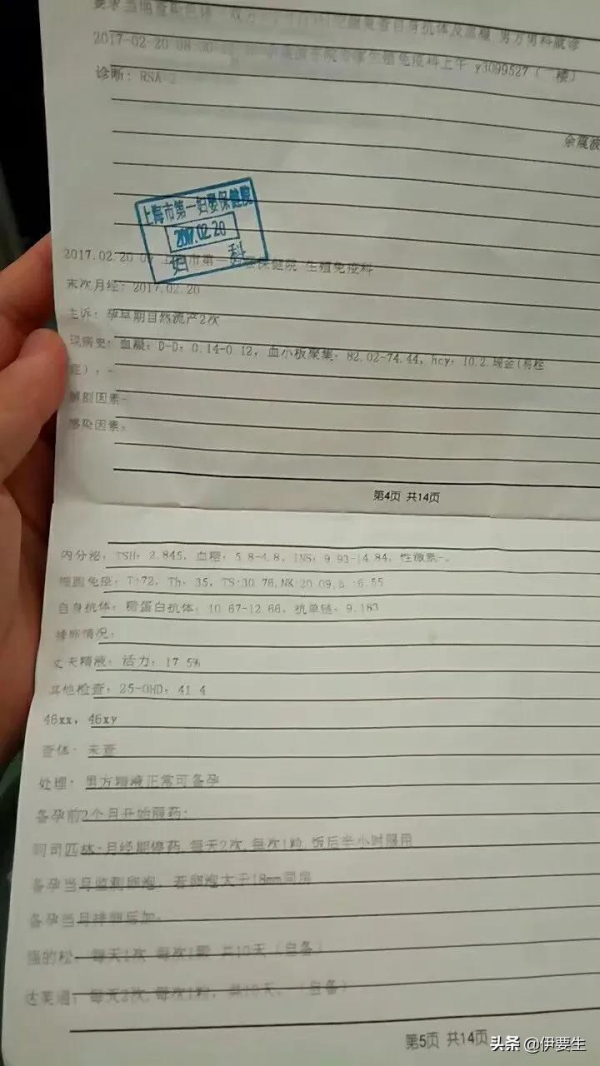 2017-02-20 08:00 生殖免疫科上午 y3099527( 楼)
诊断: RSA
上海市第一妇婴保健院
2017.02.20
妇 科
2017.02.20 上海市第一妇婴保健院 生殖免疫科
末次月经: 2017.02.20
主诉: 孕早期自然流产2次
现病史: 血凝: D-D: 0.14-0.12, 血小板聚集: 82.02-74.44, hcy: 10.2 现金(易栓
症): -
解剖因素-
感染因素:
第4页 共14页
内分泌: TSH: 2.845, 血糖: 5.8-4.8, INS: 9.93-14.84, 性激素-。
细胞免疫: T:72, Th: 35, TS:30.76,NK:20.09, 6.55
自身抗体: 糖蛋白抗体: 10.67-12.66, 抗单链: 9.183
排卵情况:
丈夫精液: 活力: 17.5%
其他检查: 25-OHD: 41.4
46xx, 46xy
查体: 未查
处理: 男方精液正常可备孕
备孕前2个月开始服药:
阿司匹林:月经期停药,每天2次,每次1粒,饭后半小时服用
备孕当月监测卵泡, 若卵泡大于18mm同房
备孕当月排卵后加:
强的松: 每天1次 每次1颗 共10天(自备)
达芙通: 每天2次,每次1粒, 共10天。(自备)
第5页 共14页
头条 @伊要生